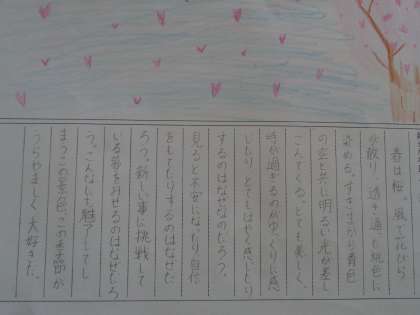 春は桜。風で花びら
が散り、透き通る桃色に
染める。すきまから青色
の空と共に明るい光が差し
こんでくる。とても美しく、
時が過ぎるのがゆっくりに感
じたり、とてもはやく感じたり
するのはなぜなのだろう。
見ると不安になったり、自信
をもてたりするのはなぜだ
ろう。新しい事に挑戦して
いる姿をみせるのはなぜだろ
う。こんなにも魅了してし
まうこの景色、この季節が
うらやましく大好きだ。